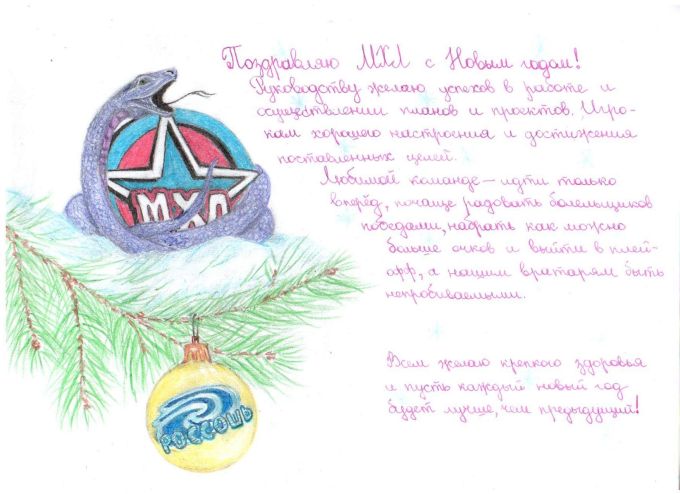 Поздравляю МХЛ с Новым годом!
Руководству желаю успехов в работе и
осуществлении планов и проектов. Игро-
кам хорошего настроения и достижения
поставленных целей.
Любимой команде – идти только
вперёд, почаще радовать болельщиков
победами, набрать как можно
больше очков и выйти в плей-
офф, а нашим вратарям быть
непробиваемыми.
Всем желаю крепкого здоровья
и пусть каждый новый год
будет лучше, чем предыдущий!
МХЛ
РОССОШЬ